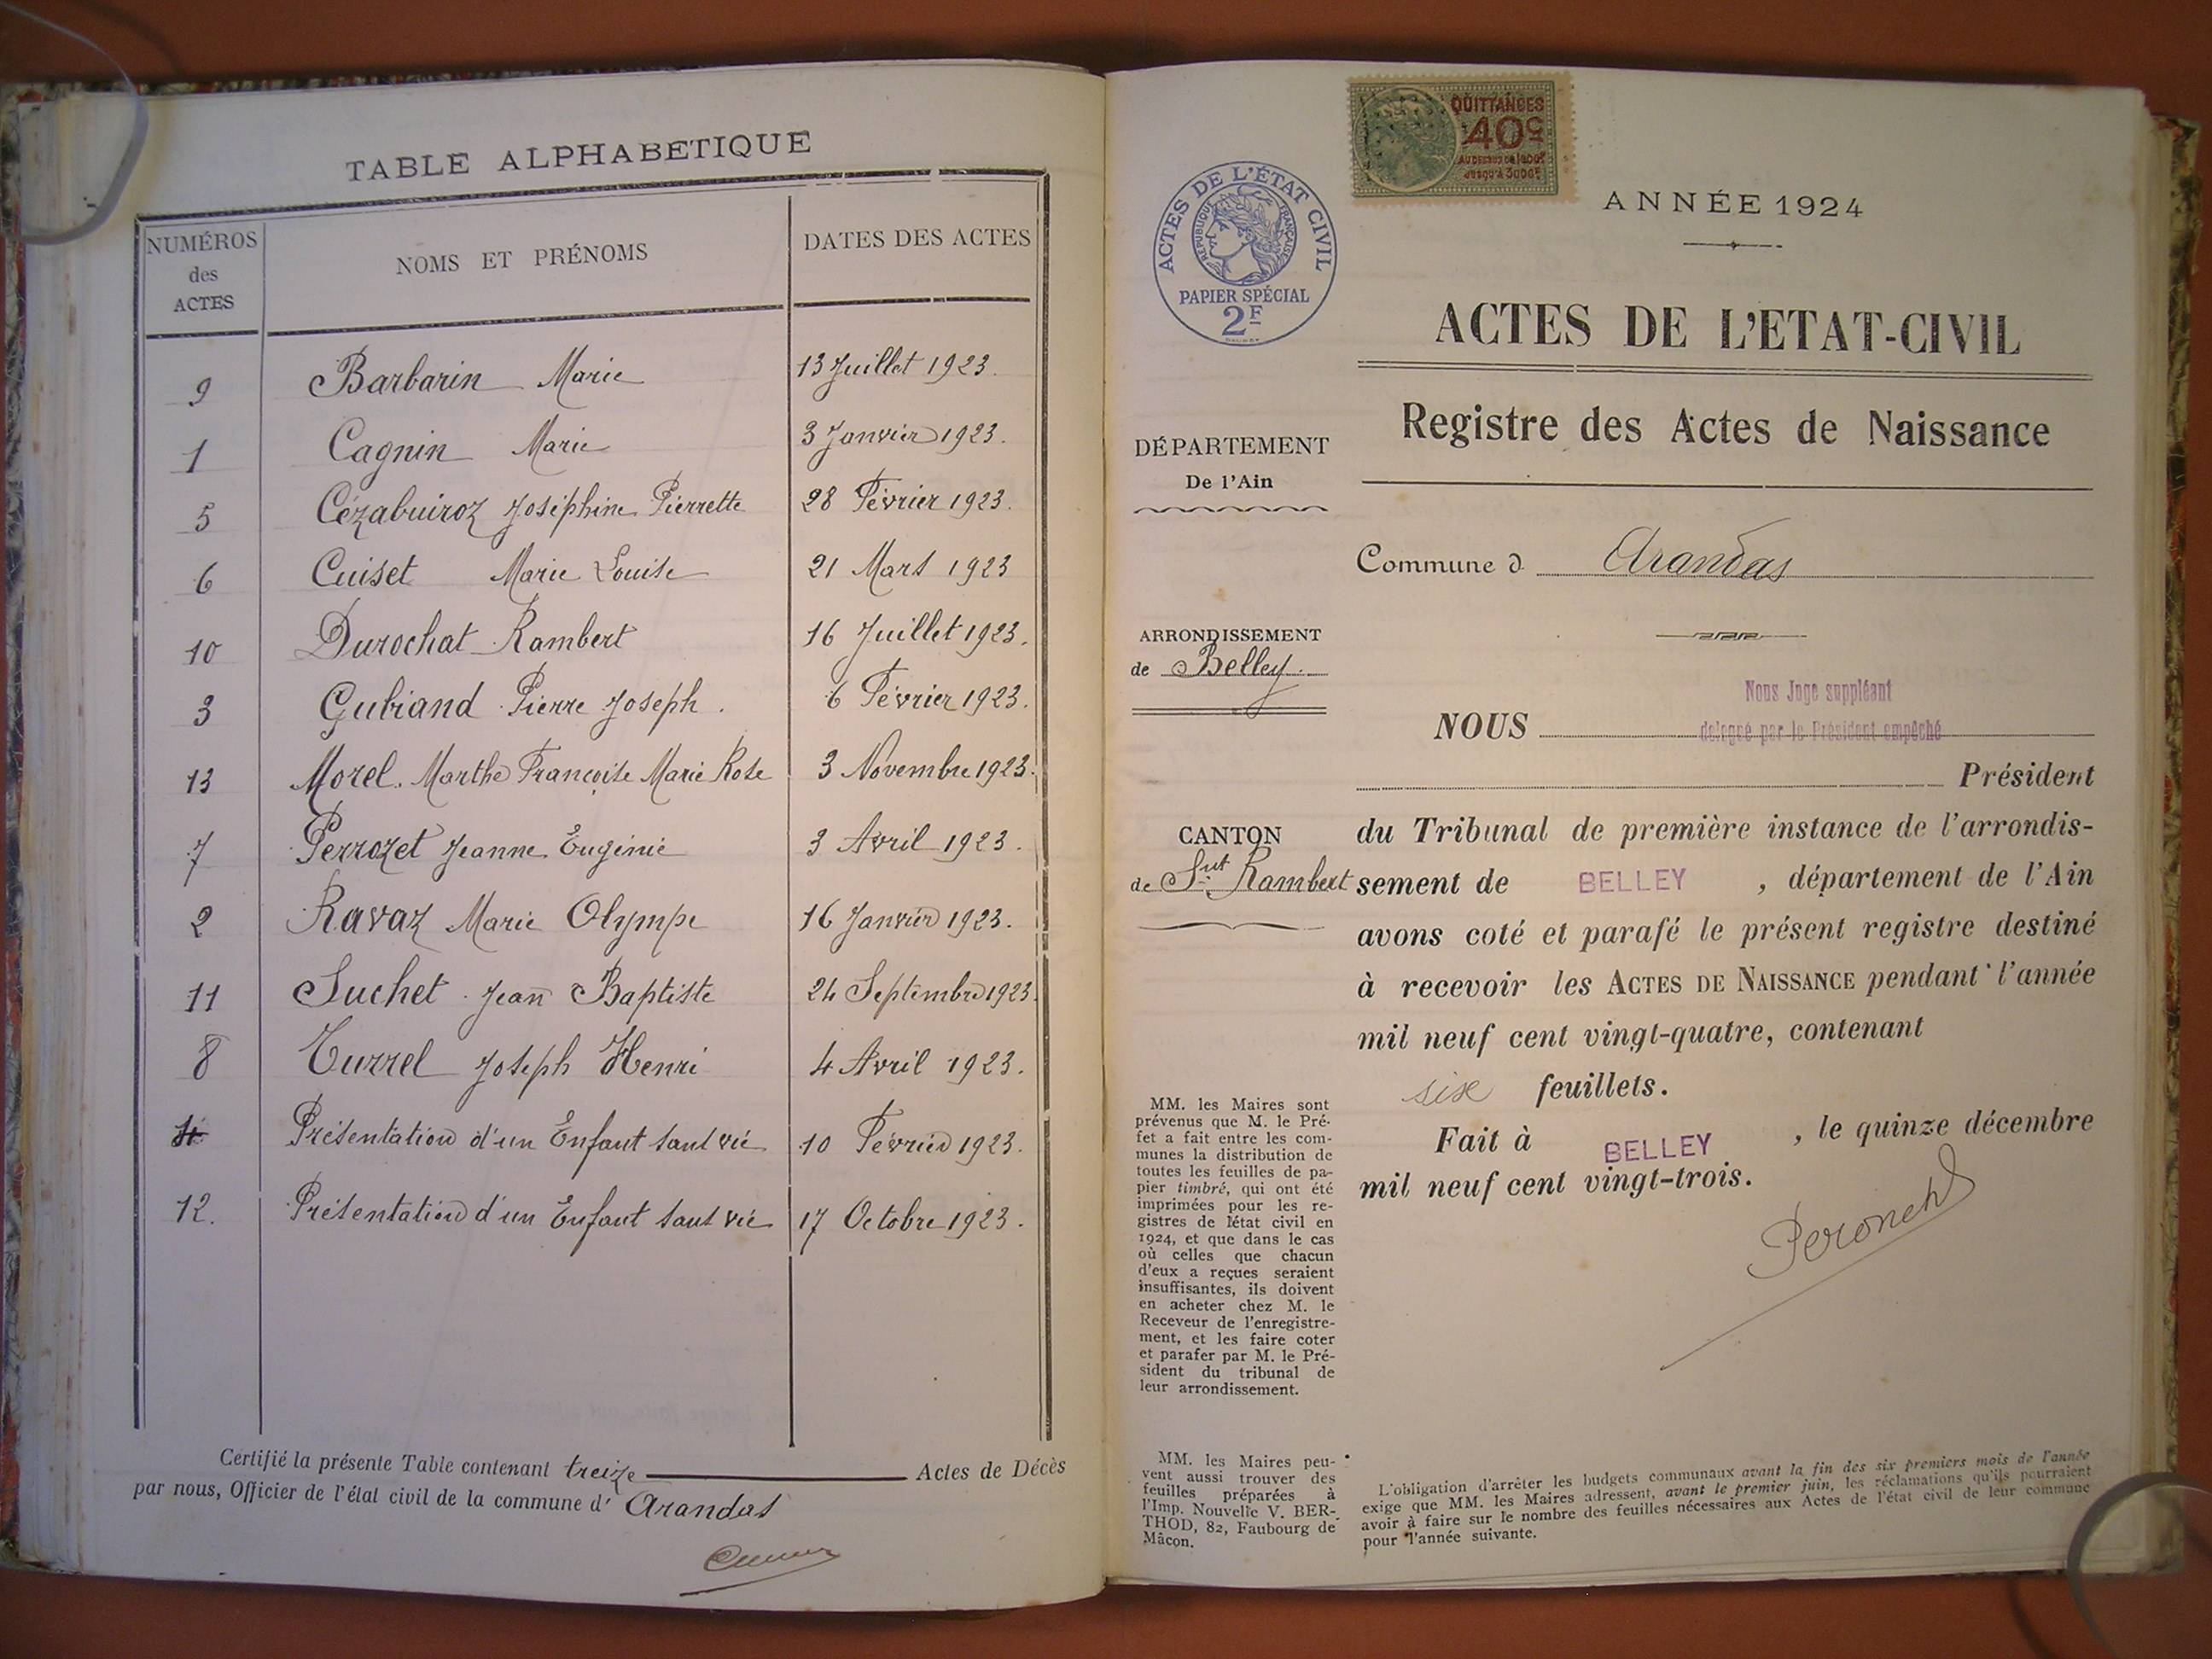 TABLE ALPHABETIQUE
NUMÉROS
des
ACTES
NOMS ET PRÉNOMS
DATES DES ACTES
9 Barbarin Marie 13 Juillet 1923.
1 Cagnin Marie 3 Janvier 1923.
5 Cézabuiroz Joséphine Pierrette 28 Février 1923.
6 Cuiset Marie Louise 21 Mars 1923
10 Durochat Rambert 16 Juillet 1923.
3 Gubiand Pierre Joseph. 6 Février 1923.
13 Morel. Marthe Françoise Marie Rose 3 Novembre 1923.
7 Perrozet Jeanne Eugénie 3 Avril 1923.
2 Ravaz Marie Olympe 16 Janvier 1923.
11 Suchet Jean Baptiste 24 Septembre 1923.
8 Turrel Joseph Henri 4 Avril 1923.
Présentation d'un Enfant sans vie 10 Février 1923.
12. Présentation d'un Enfant sans vie 17 Octobre 1923.
Certifié la présente Table contenant treize Actes de Décès
par nous, Officier de l'état civil de la commune d' Arandas
QUITTANCES
40c
ACTES DE L'ÉTAT CIVIL
RÉPUBLIQUE FRANÇAISE
PAPIER SPÉCIAL
2F
DÉPARTEMENT
De l'Ain
ARRONDISSEMENT
de Belley.
CANTON
de Snt Rambert
MM. les Maires sont
prévenus que M. le Pré-
fet a fait entre les com-
munes la distribution de
toutes les feuilles de pa-
pier timbré, qui ont été
imprimées pour les re-
gistres de l'état civil en
1924, et que dans le cas
où celles que chacun
d'eux a reçues seraient
insuffisantes, ils doivent
en acheter chez M. le
Receveur de l'enregistre-
ment, et les faire coter
et parafer par M. le Pré-
sident du tribunal de
leur arrondissement.
MM. les Maires peu-
vent aussi trouver des
feuilles préparées à
l'Imp. Nouvelle V. BER-
THOD, 82, Faubourg de
Mâcon.
ANNÉE 1924
ACTES DE L'ETAT-CIVIL
Registre des Actes de Naissance
Commune d Arandas
Nous Juge suppléant
NOUS delegué par le Président empêché
Président
du Tribunal de première instance de l'arrondis-
sement de BELLEY, département de l'Ain
avons coté et parafé le présent registre destiné
à recevoir les ACTES DE NAISSANCE pendant l'année
mil neuf cent vingt-quatre, contenant
six feuillets.
Fait à BELLEY, le quinze décembre
mil neuf cent vingt-trois.
L'obligation d'arrêter les budgets communaux avant la fin des six premiers mois de l'année
exige que MM. les Maires adressent, avant le premier juin, les réclamations qu'ils pourraient
avoir à faire sur le nombre des feuilles nécessaires aux Actes de l'état civil de leur commune
pour l'année suivante.